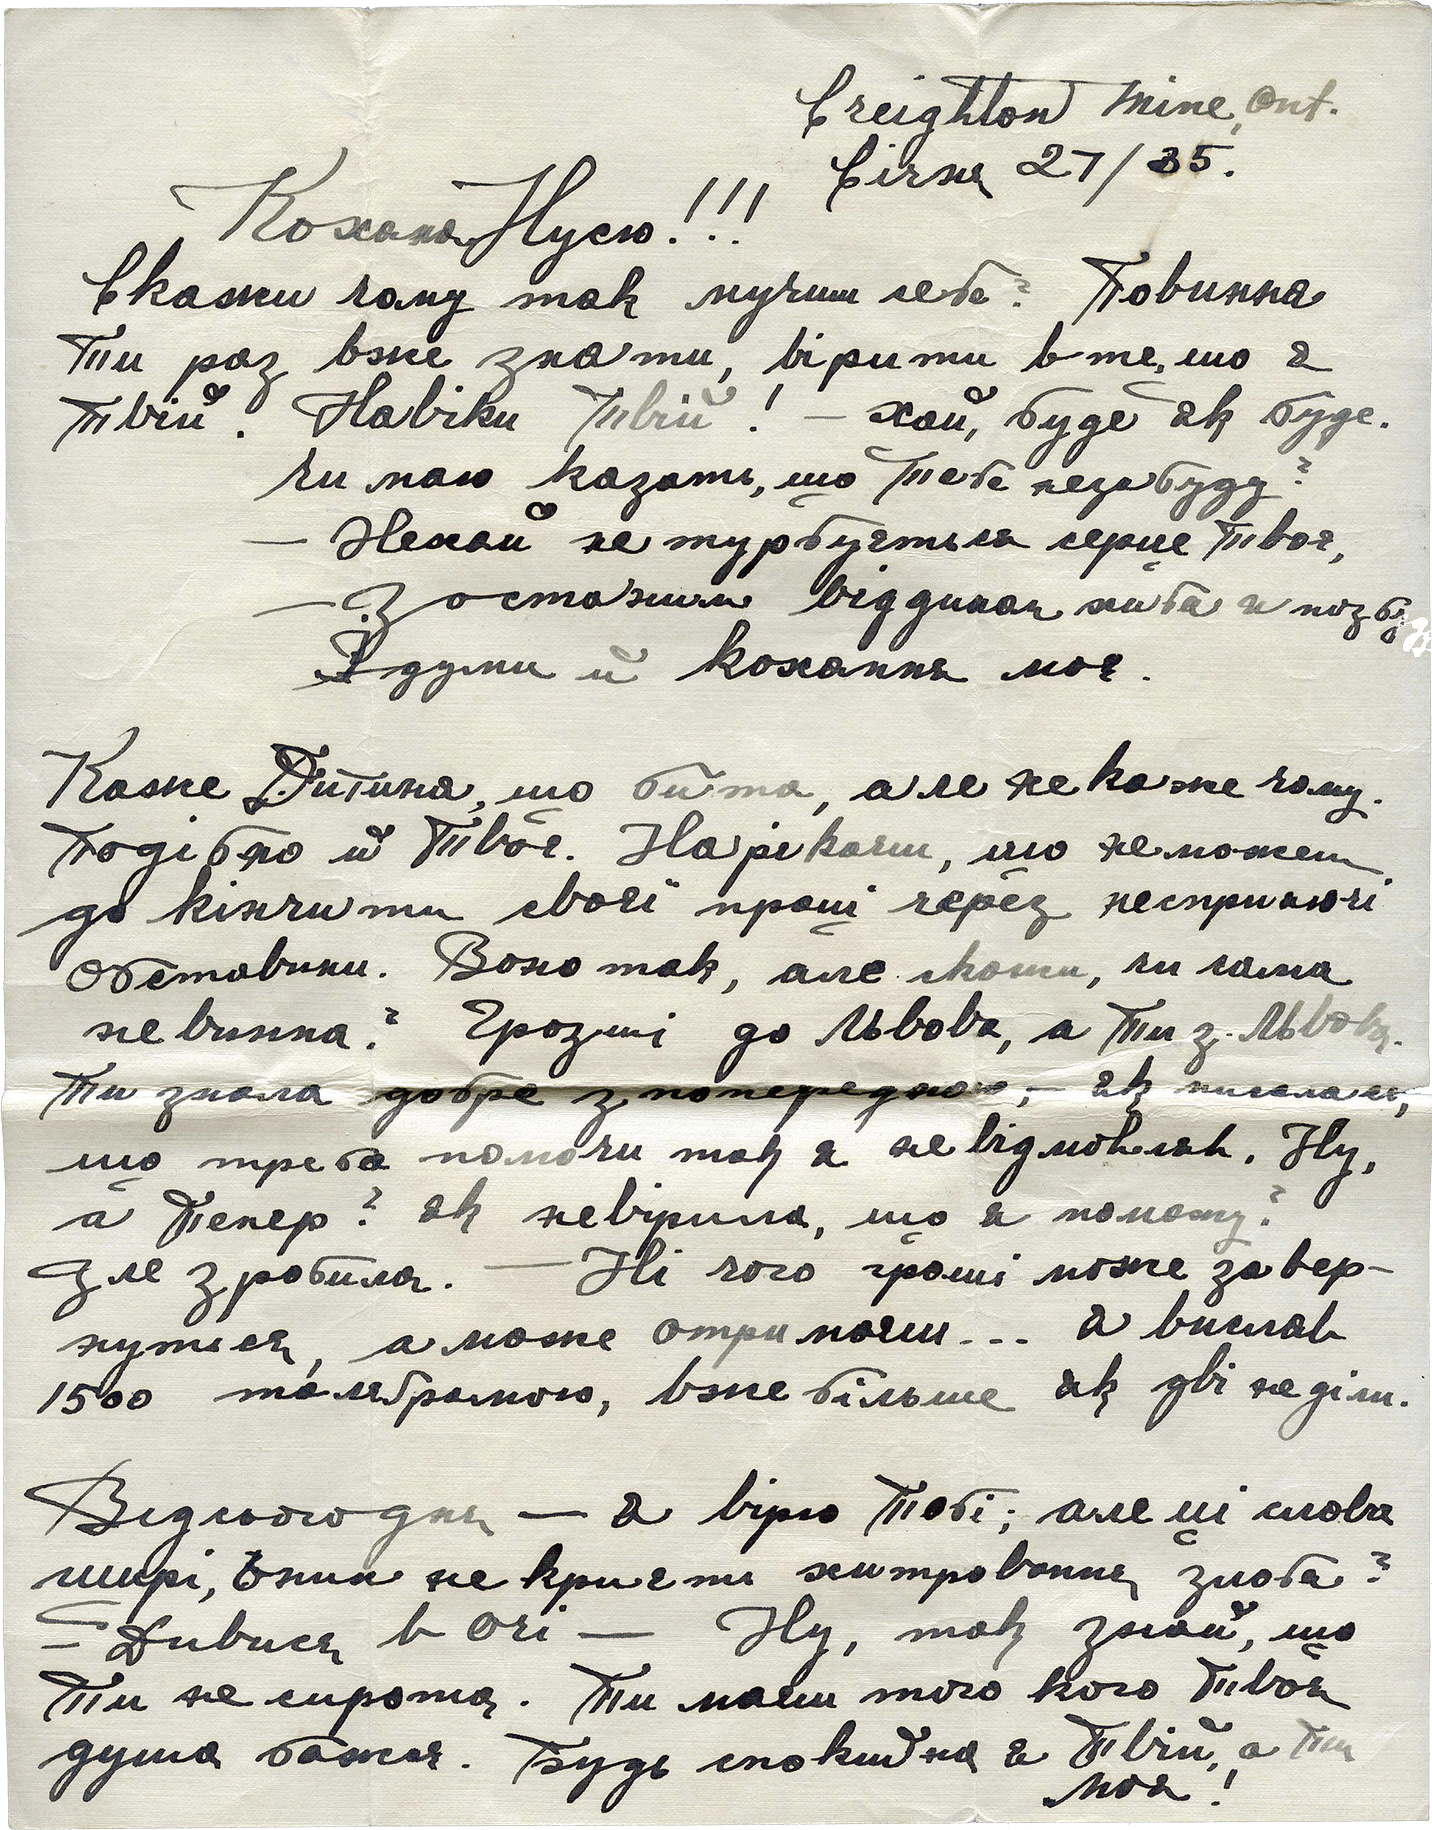 Creighton Mine, Ont.
Січня 27/35.
Кохана Нусю!!!
Скажи чому так мучиш себе? Повинна
Ти раз вже знати, вірити в те, що я
Твій. Навіки Твій! — хай, буде як буде.
Чи маю казать, що Тебе незабуду?
— Нехай не турбується серце Твоє,
— Зостанним віддихан хиба я позбуду
З думи й кохання моє.
Каже Дитина, що бита, але не каже чому.
Подібно й Твоє. Нарікаєш, що не можеш
до кінчити своєї праці через несприяючі
обставини. Воно так, але скажи, чи сама
не винна? Грозиш до Львова, а Ти з Львова.
Ти знала добре з попередного, — як писалась,
що треба помочи так я не відмовляв. Ну,
а Тепер? як невірила, що я поможу?
Зле зробила. — Ні чого гроші може завер-
нуться, а може отримаєш... я вислав
1500 телєграмою, вже більше як дві неділи.
Відсьогодня — я вірю Тобі; але ці слова
щирі, в них не криєти хитрованця злоба?
— Дивися в очі — Ну, так знай, що
Ти не сирота. Ти маєш того кого Твоя
душа бажає. Будь спокийна я Твій, а Ти
моя!